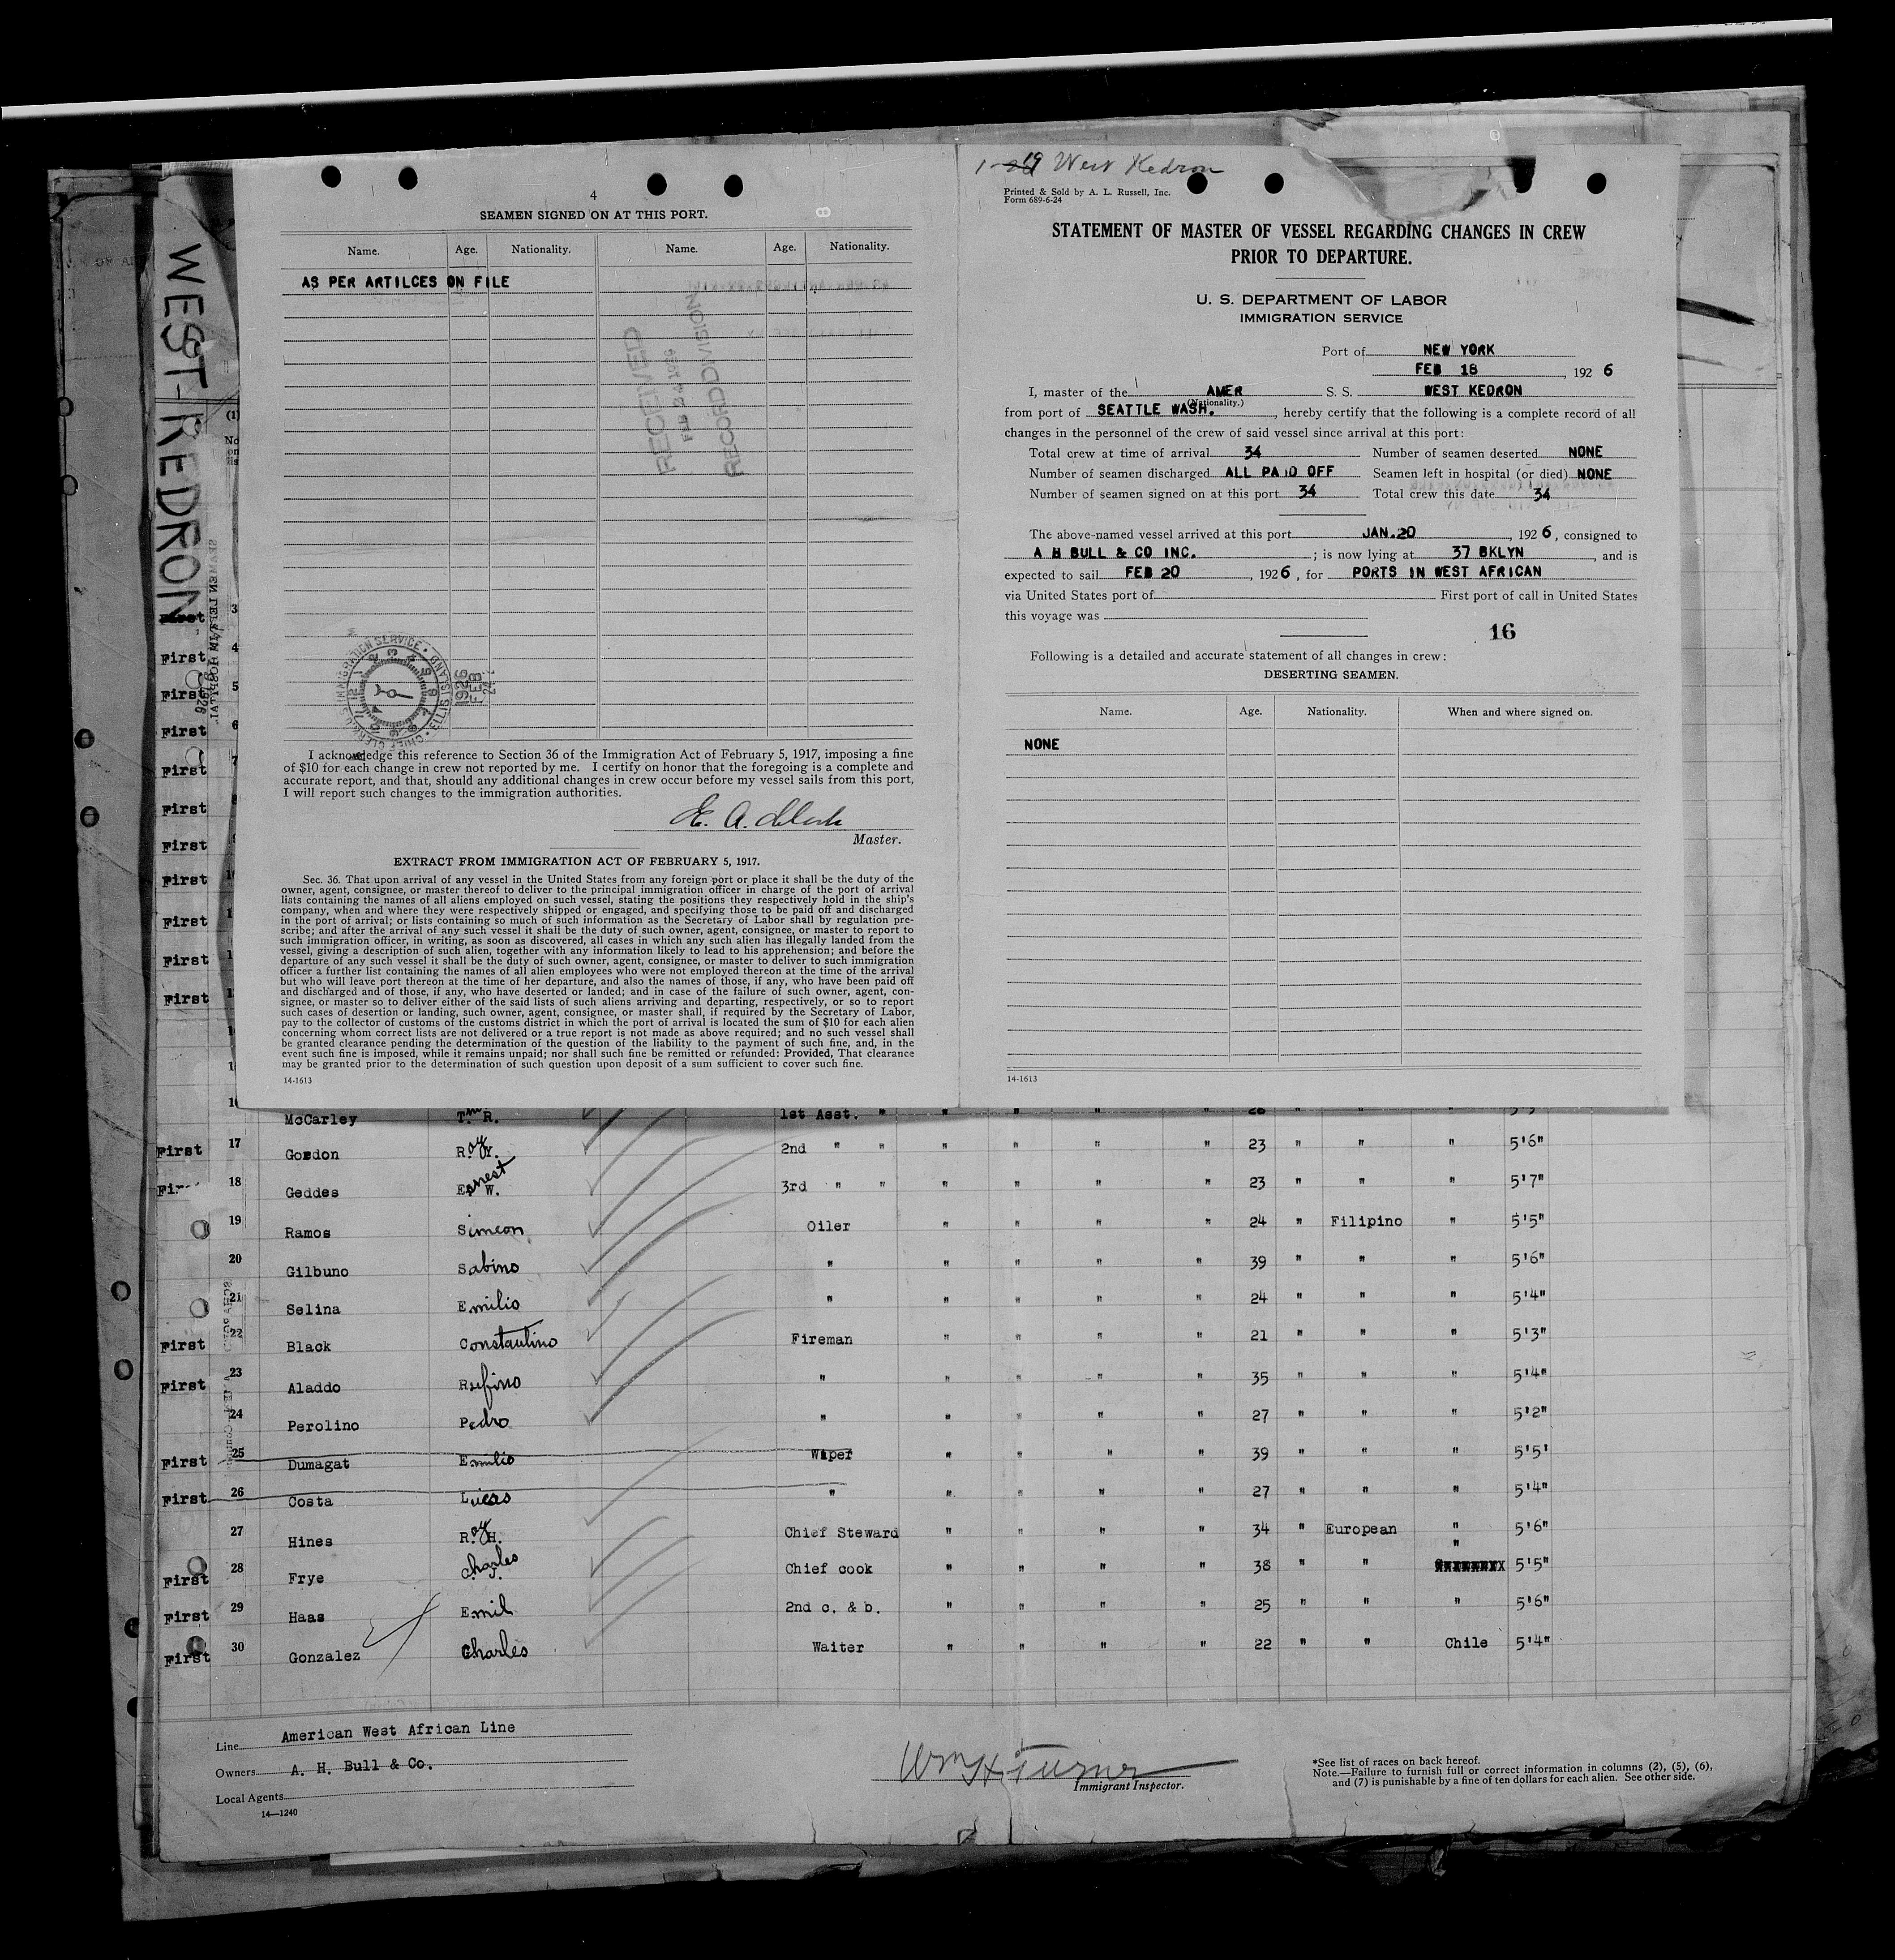 WEST-KEDRON
4
SEAMEN SIGNED ON AT THIS PORT.
Name. Age. Nationality. Name. Age. Nationality.
AS PER ARTILCES ON FILE
RECEIVED
FEB 24 1926
RECORD DIVISION
I acknowledge this reference to Section 36 of the Immigration Act of February 5, 1917, imposing a fine
of $10 for each change in crew not reported by me. I certify on honor that the foregoing is a complete and
accurate report, and that, should any additional changes in crew occur before my vessel sails from this port,
I will report such changes to the immigration authorities.
Master.
EXTRACT FROM IMMIGRATION ACT OF FEBRUARY 5, 1917.
Sec. 36. That upon arrival of any vessel in the United States from any foreign port or place it shall be the duty of the
owner, agent, consignee, or master thereof to deliver to the principal immigration officer in charge of the port of arrival
lists containing the names of all aliens employed on such vessel, stating the positions they respectively hold in the ship's
company, when and where they were respectively shipped or engaged, and specifying those to be paid off and discharged
in the port of arrival; or lists containing so much of such information as the Secretary of Labor shall by regulation pre-
scribe; and after the arrival of any such vessel it shall be the duty of such owner, agent, consignee, or master to report to
such immigration officer, in writing, as soon as discovered, all cases in which any such alien has illegally landed from the
vessel, giving a description of such alien, together with any information likely to lead to his apprehension; and before the
departure of any such vessel it shall be the duty of such owner, agent, consignee, or master to deliver to such immigration
officer a further list containing the names of all alien employees who were not employed thereon at the time of the arrival
but who will leave port thereon at the time of her departure, and also the names of those, if any, who have been paid off
and discharged and of those, if any, who have deserted or landed; and in case of the failure of such owner, agent, con-
signee, or master so to deliver either of the said lists of such aliens arriving and departing, respectively, or so to report
such cases of desertion or landing, such owner, agent, consignee, or master shall, if required by the Secretary of Labor,
pay to the collector of customs of the customs district in which the port of arrival is located the sum of $10 for each alien
concerning whom correct lists are not delivered or a true report is not made as above required; and no such vessel shall
be granted clearance pending the determination of the question of the liability to the payment of such fine, and, in the
event such fine is imposed, while it remains unpaid; nor shall such fine be remitted or refunded: Provided, That clearance
may be granted prior to the determination of such question upon deposit of a sum sufficient to cover such fine.
14-1613
West Kedron
Printed & Sold by A. L. Russell, Inc.
Form 689-6-24
STATEMENT OF MASTER OF VESSEL REGARDING CHANGES IN CREW
PRIOR TO DEPARTURE.
U. S. DEPARTMENT OF LABOR
IMMIGRATION SERVICE
Port of NEW YORK
FEB 18, 1926
I, master of the AMER S. S. WEST KEDRON
(Nationality.)
from port of SEATTLE WASH., hereby certify that the following is a complete record of all
changes in the personnel of the crew of said vessel since arrival at this port:
Total crew at time of arrival 34 Number of seamen deserted NONE
Number of seamen discharged ALL PAID OFF Seamen left in hospital (or died) NONE
Number of seamen signed on at this port 34 Total crew this date 34
The above-named vessel arrived at this port JAN.20, 1926, consigned to
A H BULL & CO INC. ; is now lying at 37 BKLYN, and is
expected to sail FEB 20, 1926, for PORTS IN WEST AFRICAN
via United States port of First port of call in United States
this voyage was
16
Following is a detailed and accurate statement of all changes in crew:
DESERTING SEAMEN.
Name. Age. Nationality. When and where signed on.
NONE
14-1613
First 3
First 4
First 5
First 6
First 7
First
First
First
First
First
First
McCarley Tm R. 1st Asst. "
First 17 Gordon Roy Y. 2nd " " " " " " 23 " " " 5'6"
18 Geddes Ernest W. 3rd " " " " " " 23 " " " 5'7"
19 Ramos Simeon Oiler " " " " 24 " Filipino " 5'5"
20 Gilbuno Sabino " " " " " 39 " " " 5'6"
21 Selina Emilio " " " " " 24 " " " 5'4"
First 22 Black Constantino Fireman " " " " 21 " " " 5'3"
First 23 Aladdo Rufino " " " " " 35 " " " 5'4"
24 Perolino Pedro " " " " " 27 " " " 5'2"
First 25 Dumagat Emilio Wiper " " " " 39 " " " 5'5'
First 26 Costa Lucas " " " " " 27 " " " 5'4"
27 Hines Roy H. Chief Steward " " " " 34 " European " 5'6"
First 28 Frye Charles C. J. Chief cook " " " " 38 " " " 5'5"
First 29 Haas Emil 2nd c. & b. " " " " 25 " " " 5'6"
First 30 Gonzalez Charles Waiter " " " " 22 " " Chile 5'4"
Line American West African Line
Owners A. H. Bull & Co.
Local Agents
14—1240
Wm H Turner
Immigrant Inspector.
*See list of races on back hereof.
Note.—Failure to furnish full or correct information in columns (2), (5), (6),
and (7) is punishable by a fine of ten dollars for each alien. See other side.